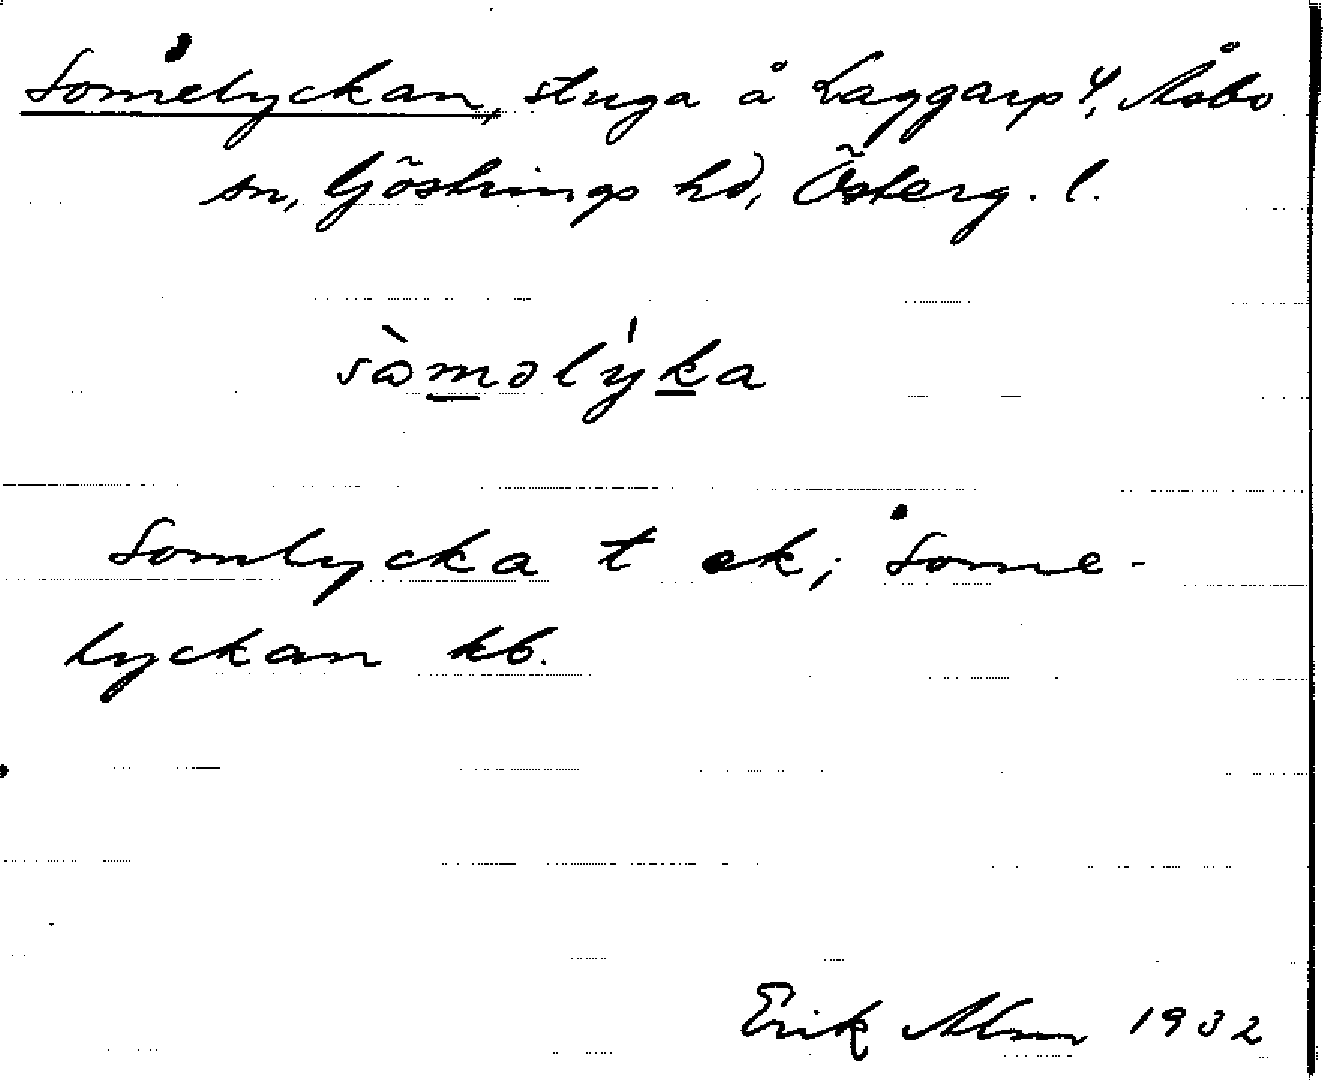 Somelyckan, stuga å Laggarp 4, Åsbo
sn, Göstrings hd, Österg. l.
sὼməlýka
Somlycka t ek; Some-
lyckan kb.
Erik Alm 1932